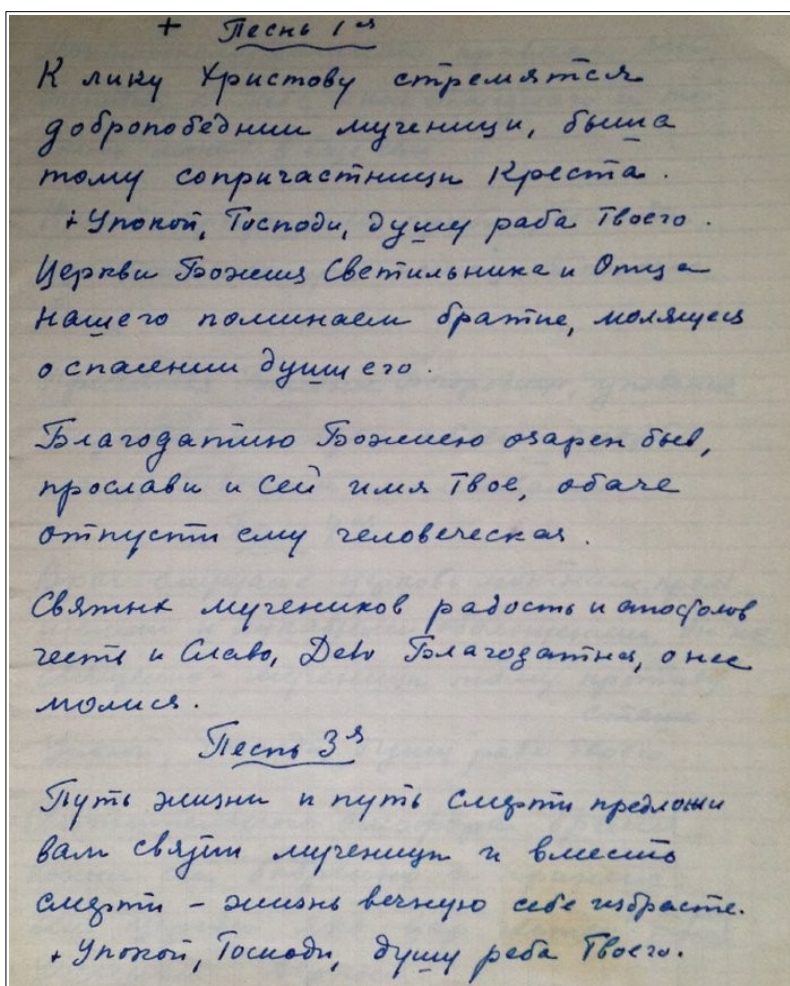 + Песнь 1я
К лику Христову стремятся
добропобеднии мученици, быша
тому сопричастници Креста.
+ Упокой, Господи, душу раба Твоего.
Церкви Божия Светильника и Отца
нашего поминаем братие, молящеся
о спасении души его.
Благодатию Божиею озарен быв,
прослави и сей имя Твое, обаче
отпусти ему человеческая.
Святых мучеников радость и апостолов
честь и Слава, Дево Благодатная, о нас
молися.
Песнь 3я
Путь жизни и путь смерти предложи
вам святии мученици и вместо
смерти - жизнь вечную себе избрасте.
+ Упокой, Господи, душу раба Твоего.